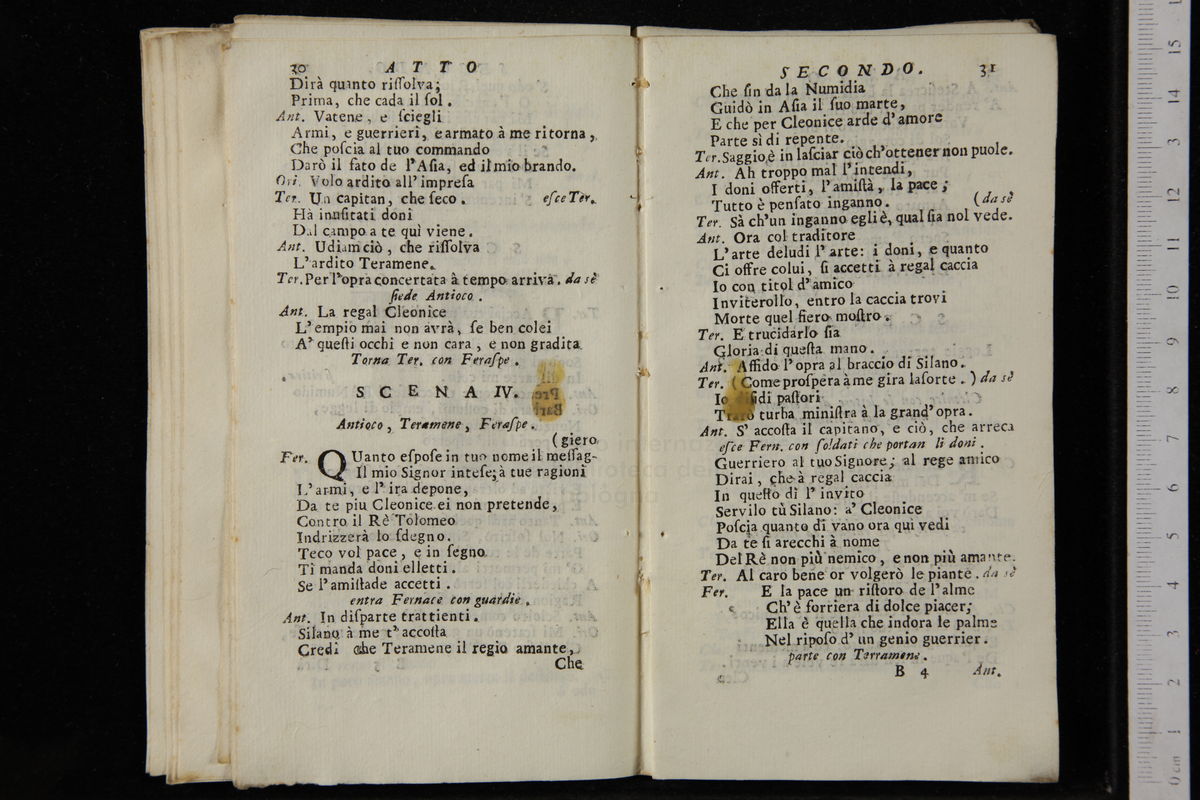 30 ATTO
Dirà quanto riſſolva;
Prima, che cada il ſol.
Ant. Vatene, e ſciegli
Armi, e guerrieri, e armato à me ritorna,
Che poſcia al tuo commando
Darò il fato de l'Aſia, ed il mio brando.
Ori. Volo ardito all' impreſa
Ter. Un capitan, che ſeco. eſce Ter.
Hà inuſitati doni
Dal campo a te quì viene.
Ant. Udiam ciò, che riſſolva
L'ardito Teramene.
Ter. Per l'opra concertata à tempo arriva. da sè
ſiede Antioco.
Ant. La regal Cleonice
L'empio mai non avrà, ſe ben colei
A' queſti occhi e non cara, e non gradita
Torna Ter. con Feraſpe.
SCENA IV.
Antioco, Teramene, Feraſpe.
(giero
Fer. QUanto eſpoſe in tuo nome il meſſag-
Il mio Signor inteſe; à tue ragioni
L'armi, e l'ira depone,
Da te piu Cleonice ei non pretende,
Contro il Rè Tolomeo
Indrizzerà lo ſdegno.
Teco vol pace, e in ſegno
Ti manda doni elletti.
Se l'amiſtade accetti.
entra Fernace con guardie.
Ant. In diſparte trattienti.
Silano à me t'accoſta
Credi che Teramene il regio amante,
Che
SECONDO. 31
Che ſin da la Numidia
Guidò in Aſia il ſuo marte,
E che per Cleonice arde d'amore
Parte sì di repente.
Ter. Saggio è in laſciar ciò ch'ottener non puole.
Ant. Ah troppo mal l'intendi,
I doni offerti, l'amiſtà, la pace;
Tutto è penſato inganno. (da sè
Ter. Sà ch'un inganno egli è, qual ſia nol vede.
Ant. Ora col traditore
L'arte deludi l'arte: i doni, e quanto
Ci offre colui, ſi accetti à regal caccia
Io con titol d'amico
Inviterollo, entro la caccia trovi
Morte quel fiero moſtro.
Ter. E trucidarlo ſia
Gloria di queſta mano.
Ant. Affido l'opra al braccio di Silano.
Ter. (Come proſpera à me gira la ſorte.) da sè
Io di paſtori
turba miniſtra à la grand' opra.
Ant. S' accoſta il capitano, e ciò, che arreca
eſce Fern. con ſoldati che portan li doni.
Guerriero al tuo Signore; al rege amico
Dirai, che à regal caccia
In queſto dì l'invito
Servilo tù Silano: a' Cleonice
Poſcia quanto di vano ora quì vedi
Da te ſi arecchi à nome
Del Rè non più nemico, e non più amante.
Ter. Al caro bene or volgerò le piante. da sè
Fer. E la pace un riſtoro de l'alme
Ch'è forriera di dolce piacer;
Ella è quella che indora le palme
Nel ripoſo d'un genio guerrier.
parte con Terramene.
B 4 Ant.